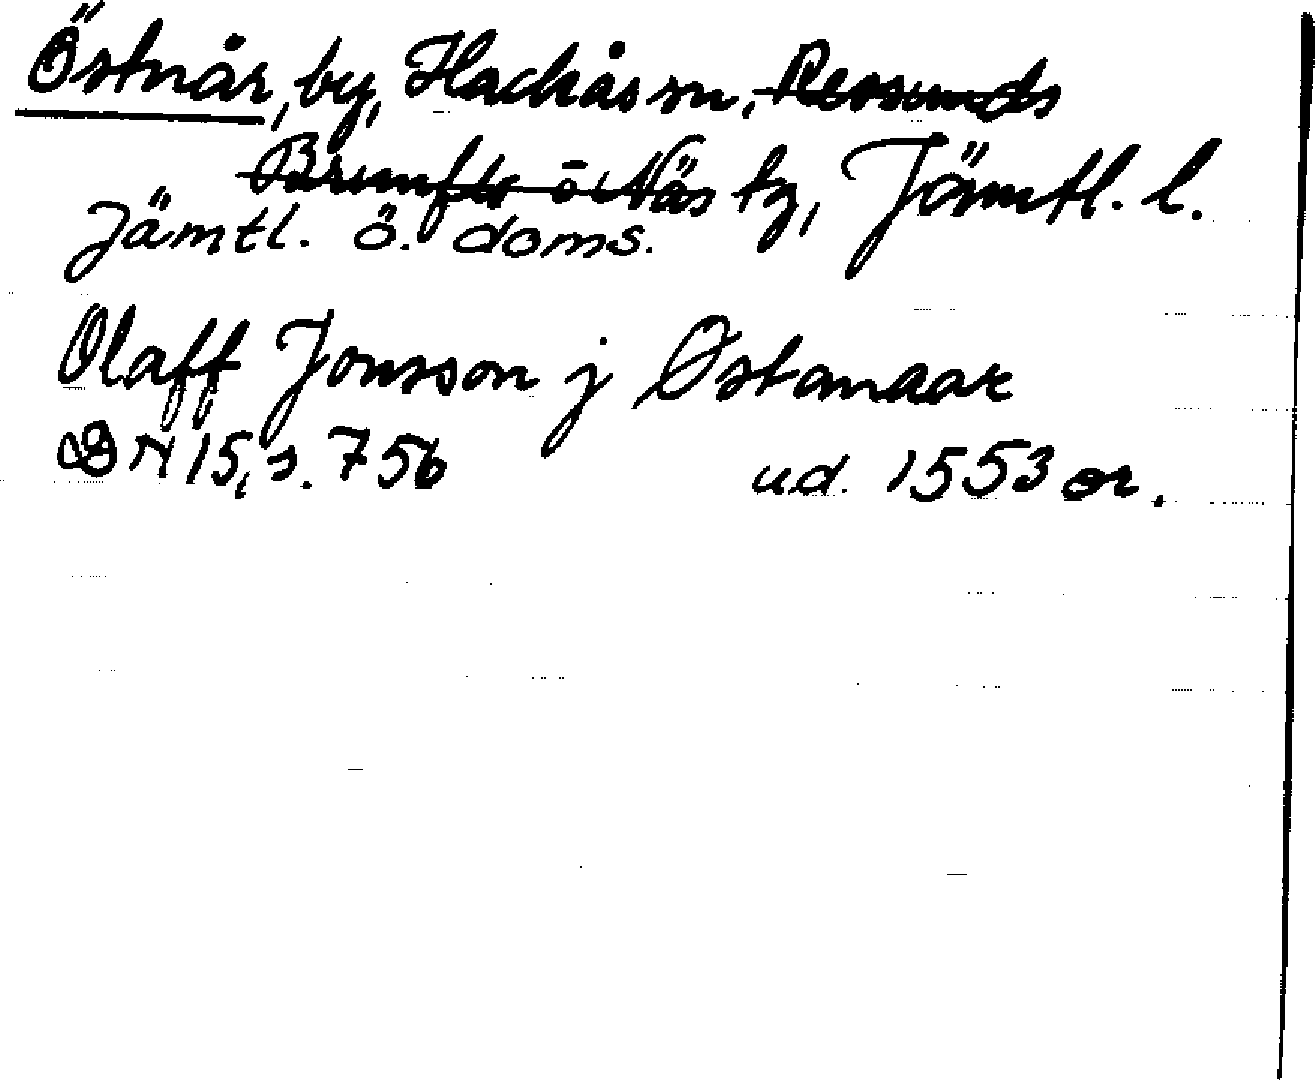 Östnår, by, Hackås sn, Revsunds
Brunflo o Näs tg, Jämtl. l.
Jämtl. ö. doms.
Olaff Jonsson j Østanaar
DN 15, s. 756 ud. 1553 or.